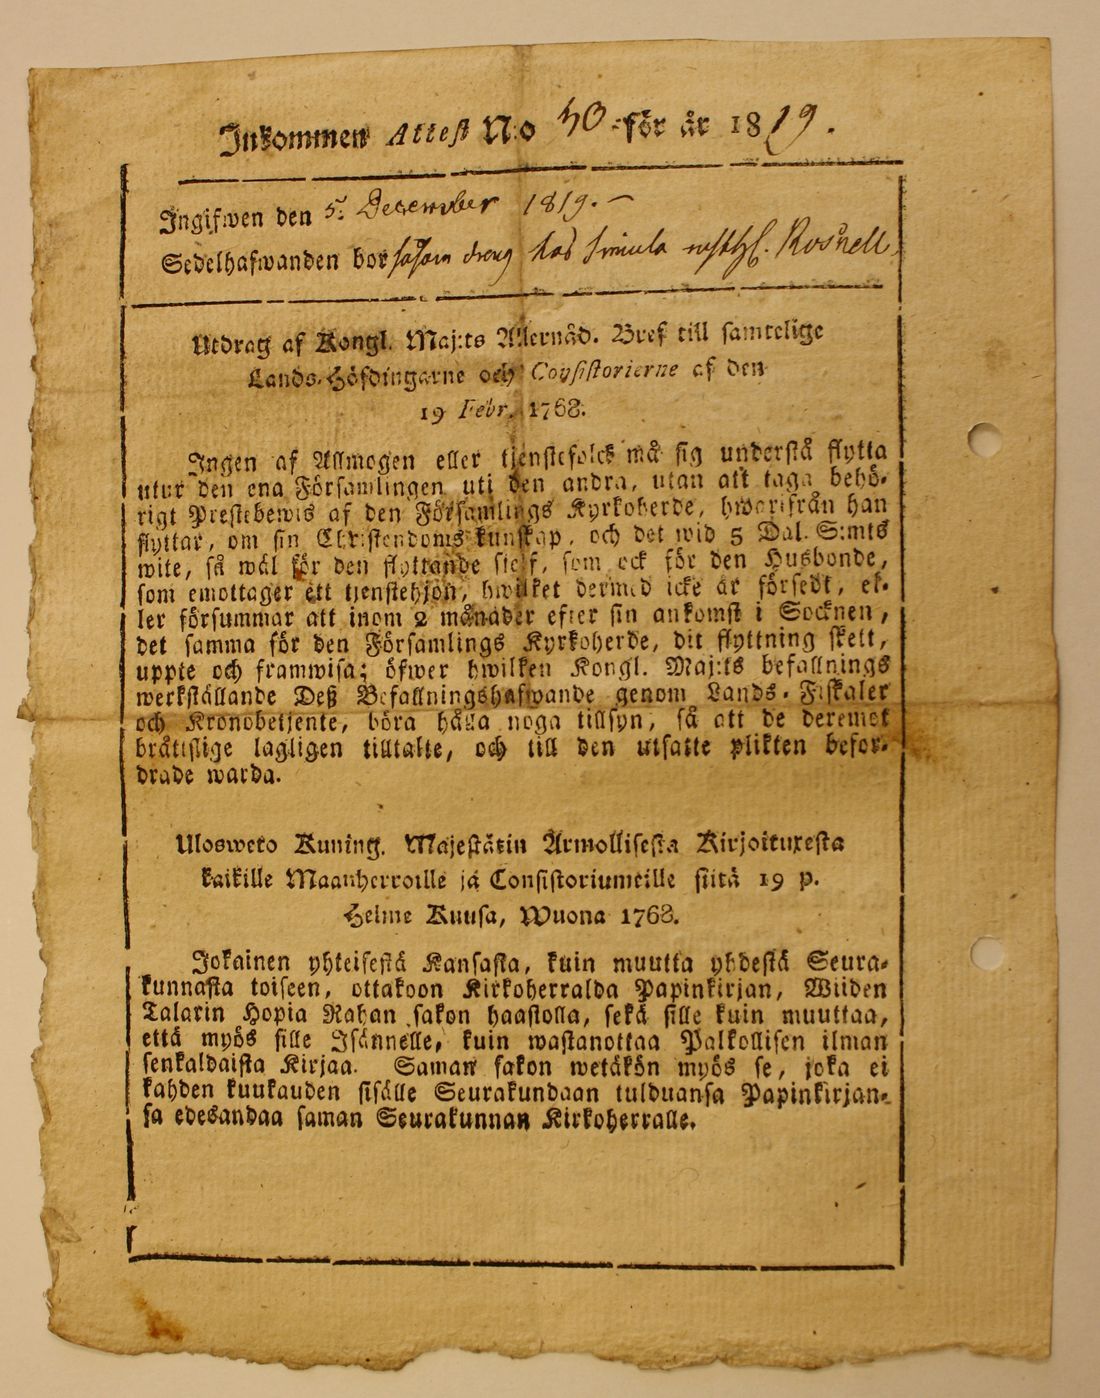 Inkommen Attest N:o 50 för år 1819.
Ingifwen den 5. December 1819. –
Sedelhafwanden bor såsom dreng hos Simula Rosnell
Utdrag af Kongl. Maj:ts Allernåd. Bref till samtelige
Lands-Höfdingarne och Consistorierne af den
19 Febr. 1768.
Ingen af Allmogen eller tjenstefolck må sig understå flytta
utur den ena Församlingen uti den andra, utan att taga behö-
rigt Prestebewis af den Församlings Kyrkoherde, hwarifrån han
flyttar, om sin Christendoms kunskap, och det wid 5 Dal. S:mts
wite, så wäl för den flyttande sielf, som ock för den Husbonde,
som emottager ett tjenstehjon, hwilket dermed icke är försedt, el-
ler försummar att inom 2 månader efter sin ankomst i Socknen,
det samma för den Församlings Kyrkoherde, dit flyttning skett,
uppte och framwisa; öfwer hwilken Kongl. Maj:ts befallnings
werkställande Deß Befallningshafwande genom Lands-Fiskaler
och Kronobetjente, böra hålla noga tillsyn, så att de deremot
bråttslige lagligen tilltalte, och till den utsatte plikten befor-
drade warda.
Ulosweto Kuning. Majestätin Armollisesta Kirjoituxesta
kaikille Maanherroille ja Consistoriumeille siitä 19 p.
Helme Kuusa, Wuona 1768.
Jokainen yhteisestä Kansasta, kuin muutta yhdestä Seura-
kunnasta toiseen, ottakoon Kirkoherralda Papinkirjan, Wiiden
Talarin Hopia Rahan sakon haastolla, sekä sille kuin muuttaa,
että myös sille Isännelle, kuin wastanottaa Palkollisen ilman
senkaldaista Kirjaa. Saman sakon wetäkön myös se, joka ei
kahden kuukauden sisälle Seurakundaan tulduansa Papinkirjan-
sa edesandaa saman Seurakunnan Kirkoherralle.